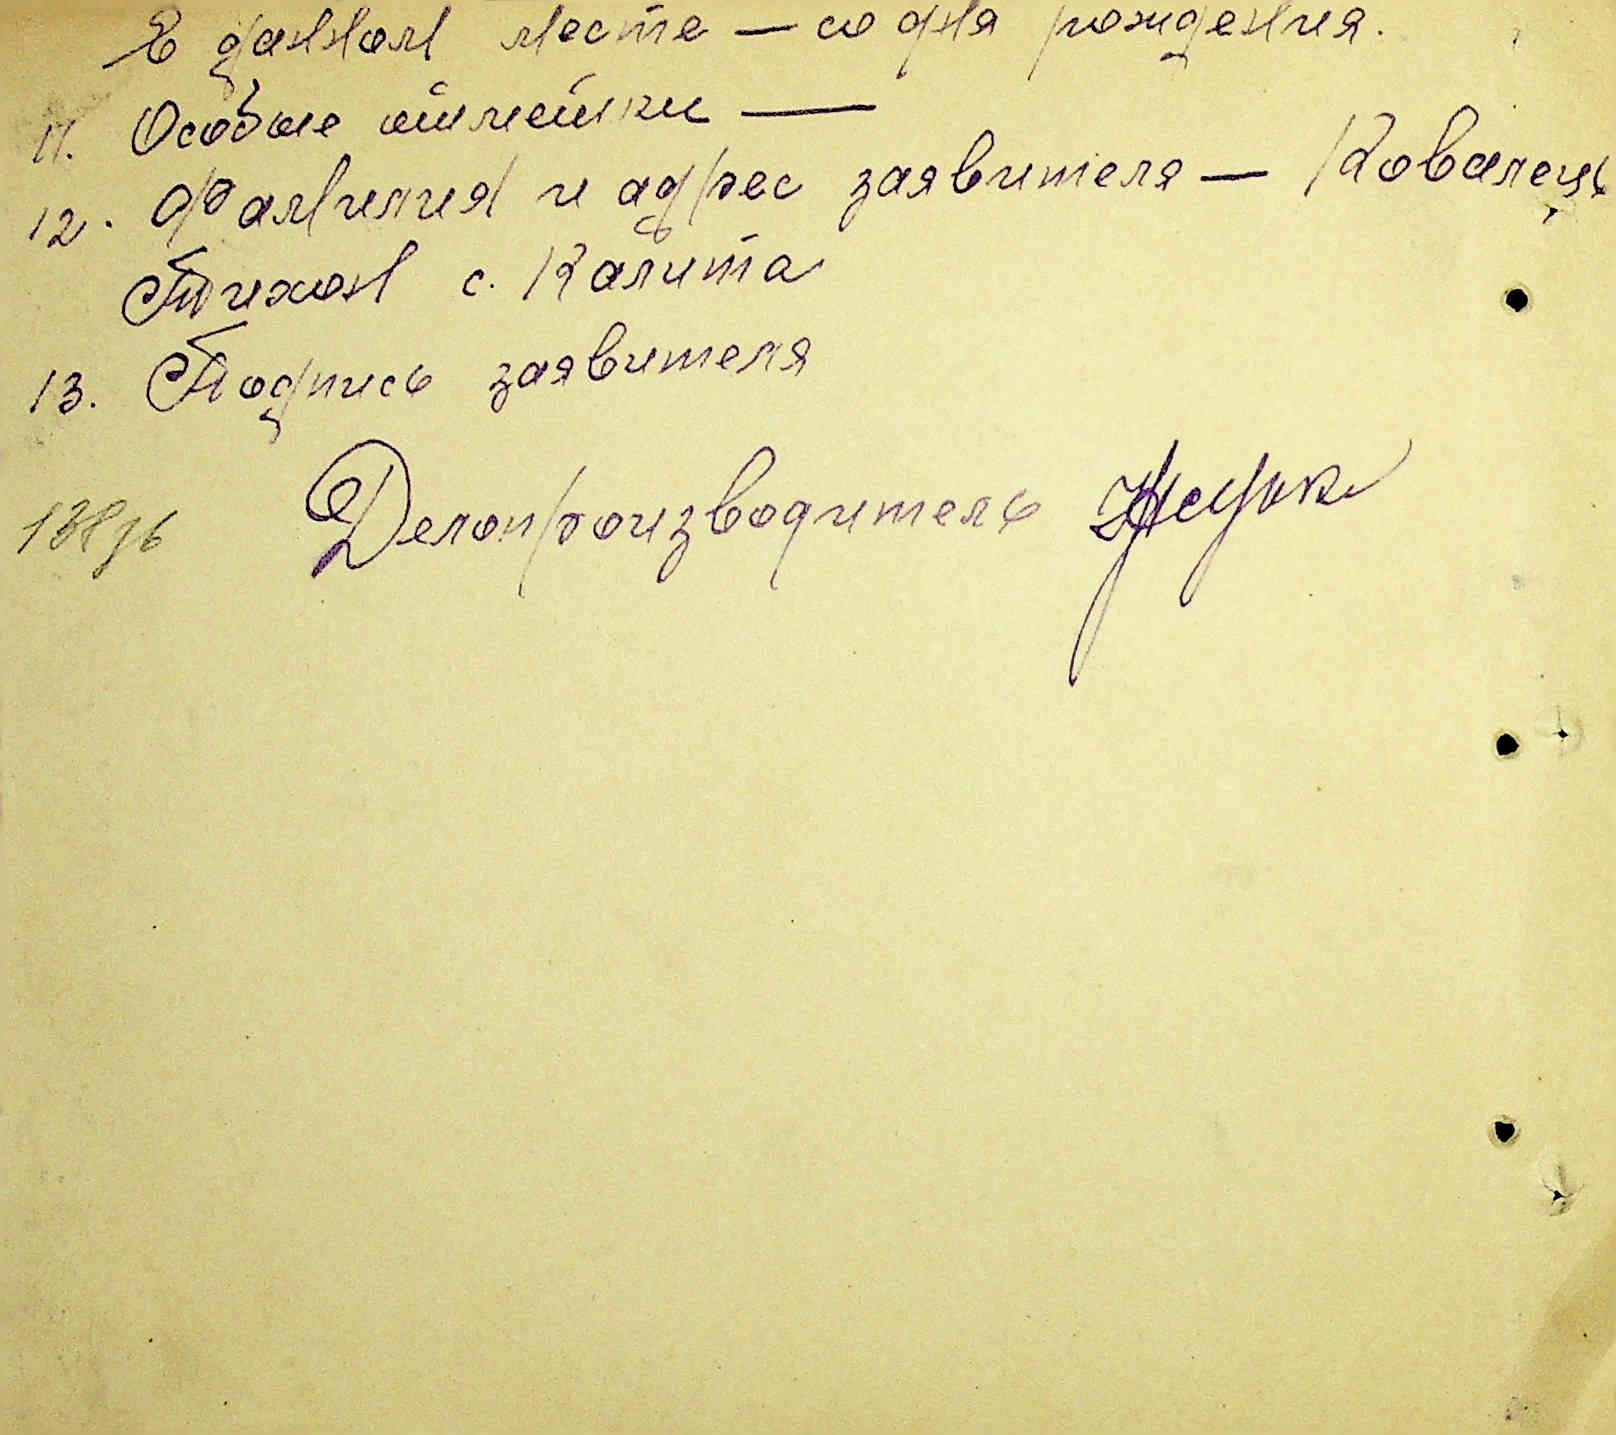 В данном месте — со дня рождения.
11. Особые отметки —
12. Фамилия и адрес заявителя — Ковалець
Тихон с. Калита
13. Подпись заявителя
Делопроизводитель